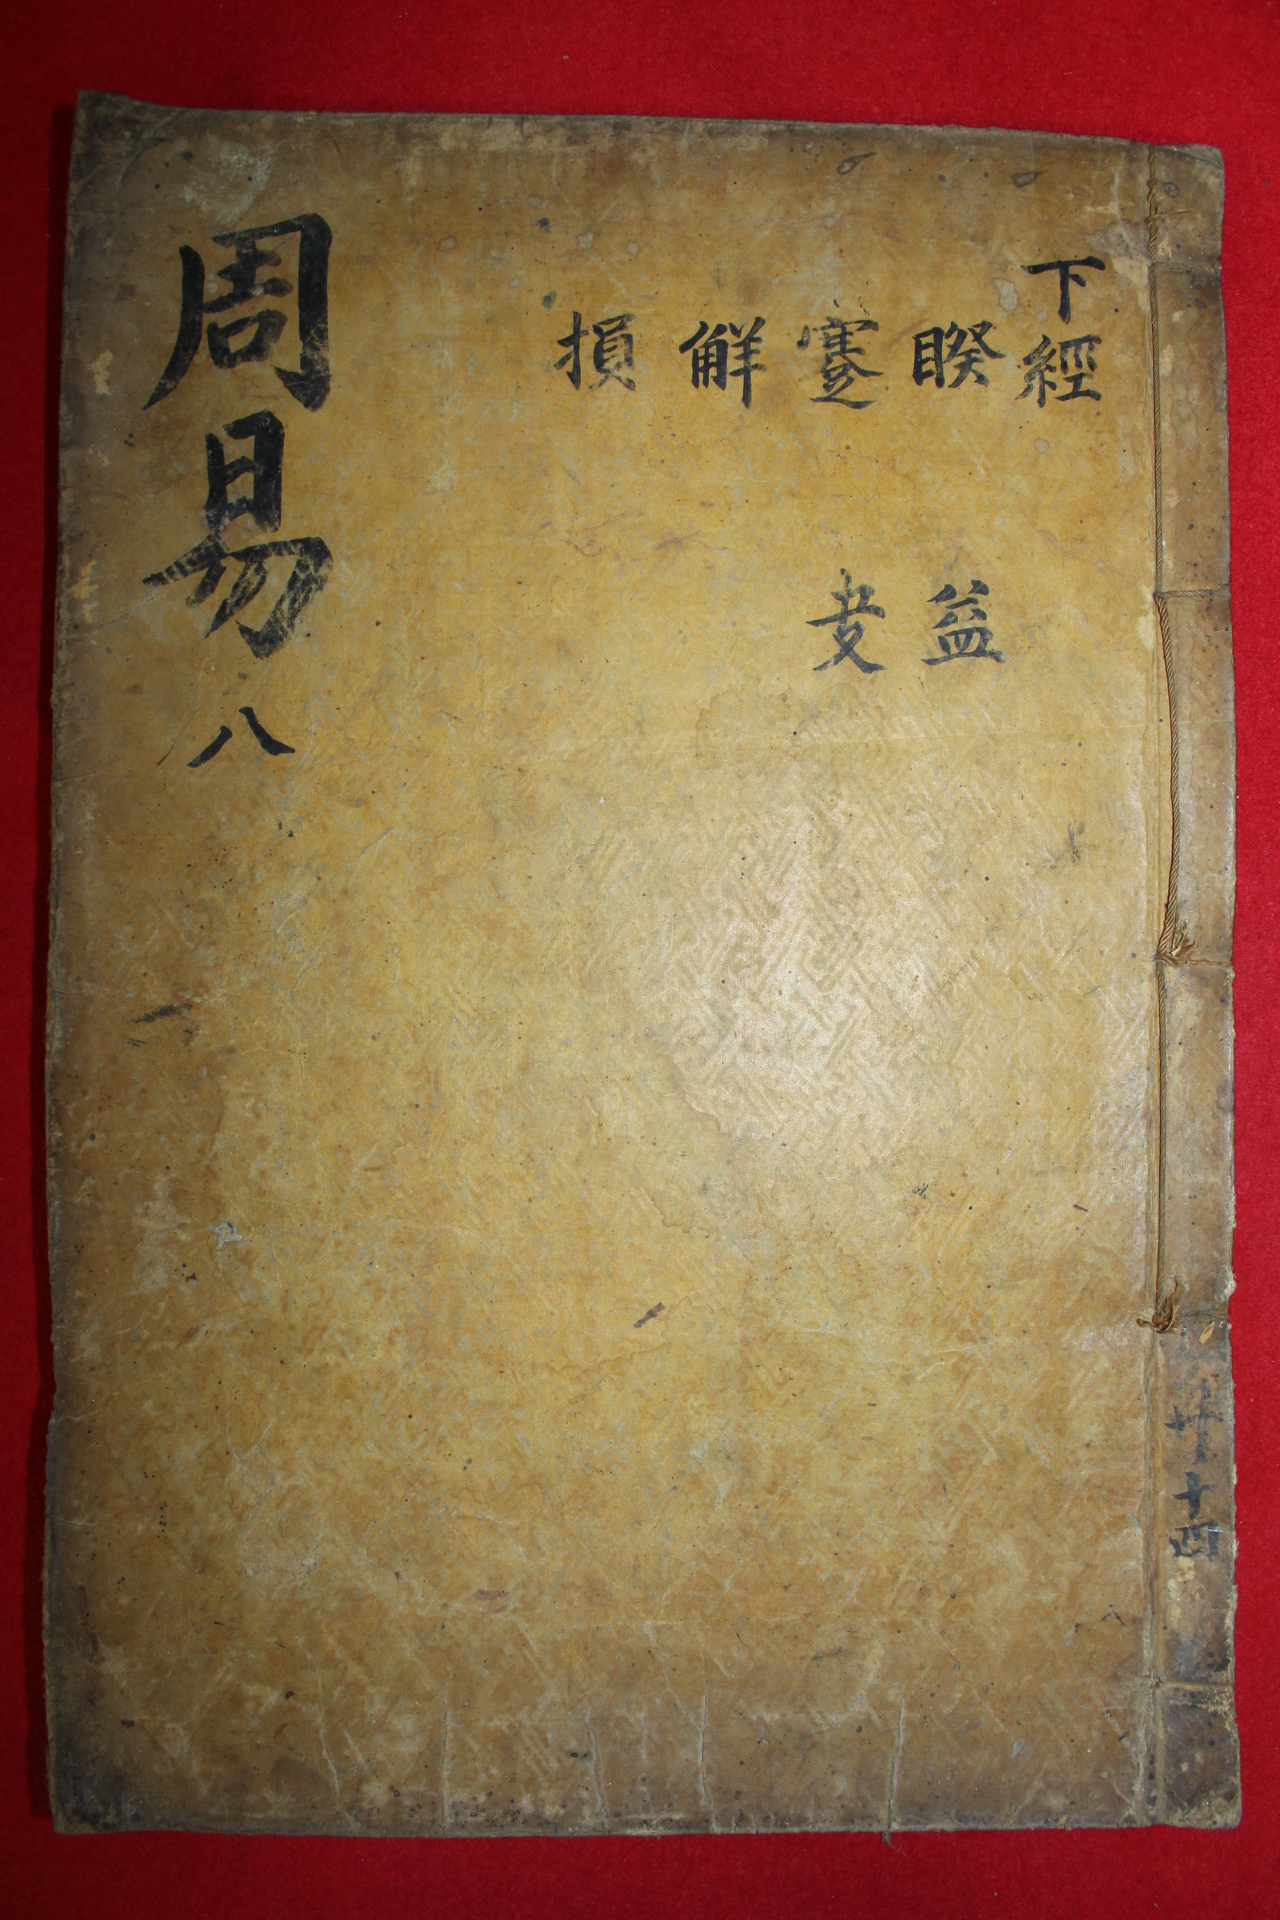 下經
睽
蹇
觧
損
益
夬
周易 八
十四